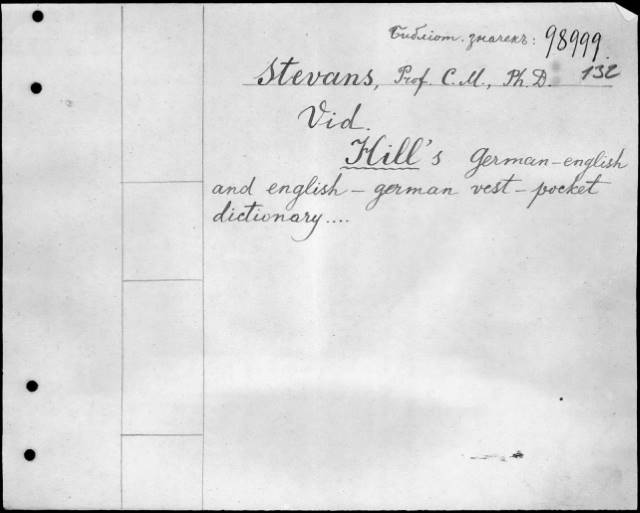 Библіот. значекъ: 98999.
132
Stevans, Prof. C. M., Ph. D.
Vid.
Hill's German-english
and english-german vest-pocket
dictionary....